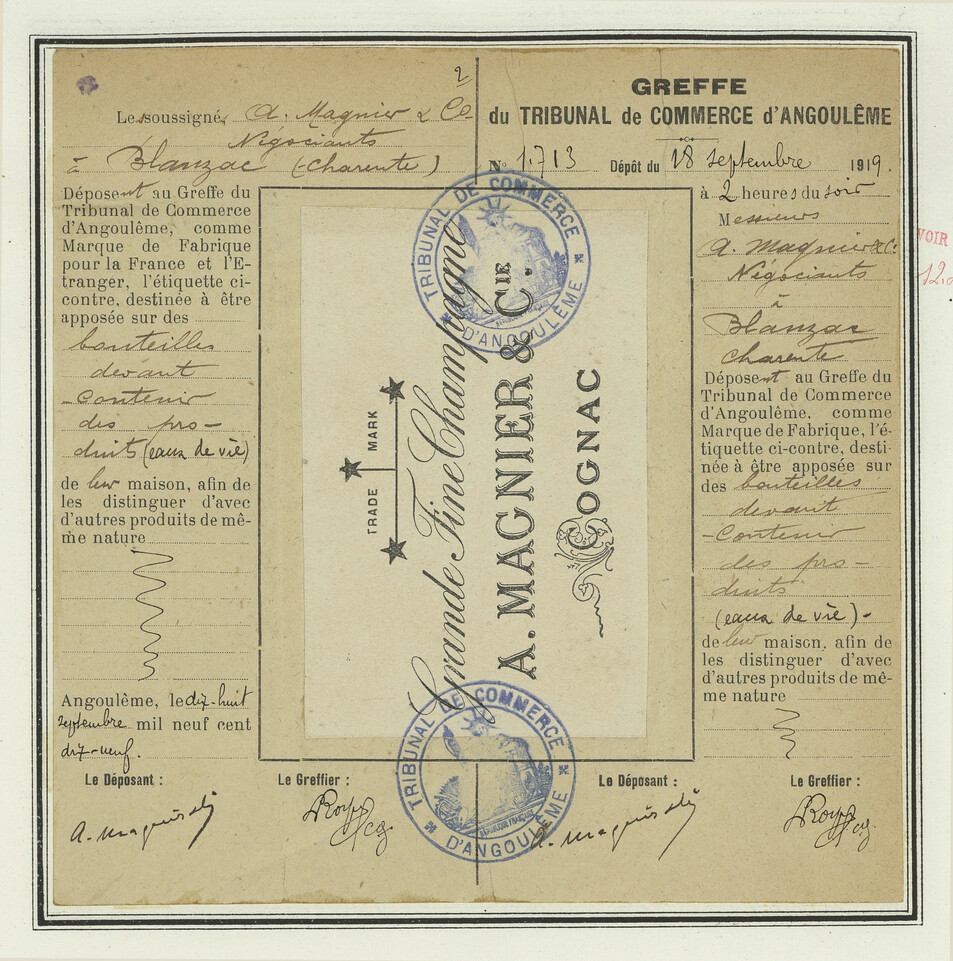 2
Les soussignés A. Magnier & Co
Négociants
à Blanzac (Charente)
Déposent au Greffe du
Tribunal de Commerce
d'Angoulême, comme
Marque de Fabrique
pour la France et l'E-
tranger, l'étiquette ci-
contre, destinée à être
apposée sur des
bouteilles
devant
contenir
des pro-
duits (eaux de vie)
de leur maison, afin de
les distinguer d'avec
d'autres produits de mê-
me nature
Angoulême, le dix-huit
septembre mil neuf cent
dix-neuf.
Le Déposant :
Le Greffier :
TRADE MARK
Grande Fine Champagne
A. MAGNIER & CIE.
COGNAC
TRIBUNAL DE COMMERCE
D'ANGOULÊME
TRIBUNAL DE COMMERCE
RÉPUBLIQUE FRANÇAISE
D'ANGOULÊME
GREFFE
du TRIBUNAL de COMMERCE d'ANGOULÊME
No 1.713 Dépôt du 18 septembre 1919.
à 2 heures du soir
Messieurs
A. Magnier & Co
Négociants
à
Blanzac
Charente
Déposent au Greffe du
Tribunal de Commerce
d'Angoulême, comme
Marque de Fabrique, l'é-
tiquette ci-contre, desti-
née à être apposée sur
des bouteilles
devant
contenir
des pro-
duits
(eaux de vie)-
de leur maison, afin de
les distinguer d'avec
d'autres produits de mê-
me nature
Le Déposant :
Le Greffier :
VOIR